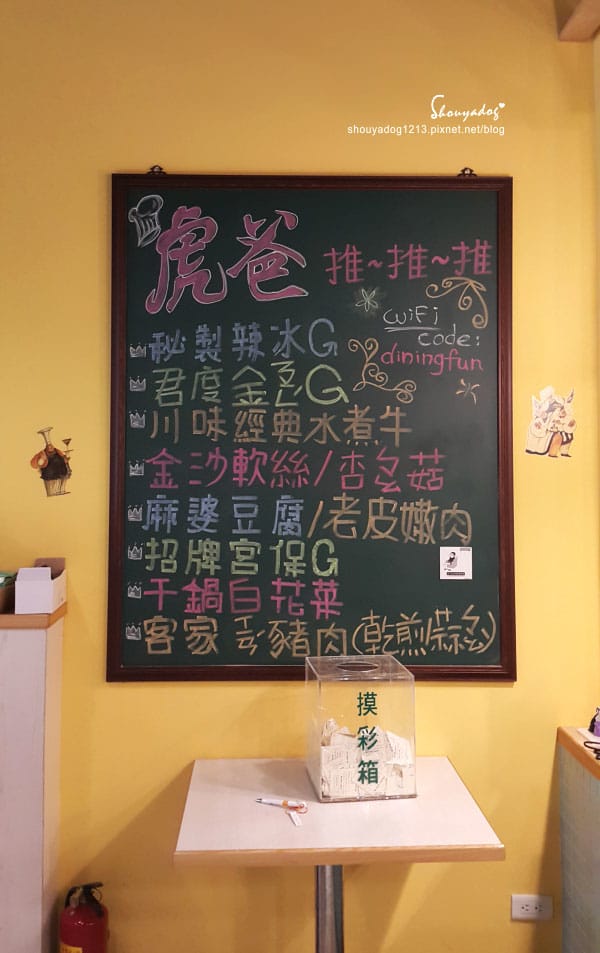 Shouyadog
shouyadog1213.pixnet.net/blog
虎爸 推~推~推
WiFi
code:
diningfun
秘製辣冰G
君度金沙G
川味經典水煮牛
金沙軟絲/杏鮑菇
麻婆豆腐/老皮嫩肉
招牌宮保G
干鍋白花菜
客家豬肉(乾煎/蒜)
摸彩箱